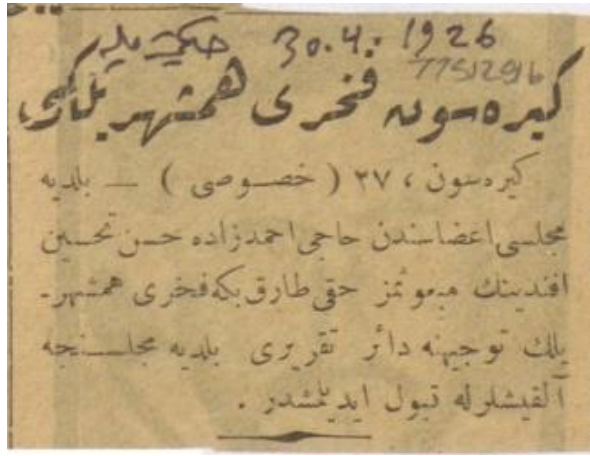 حاكميت مليه 30.4.1926
7751296
كيره‌سون فخرى همشهريلكى
كيره‌سون ، ٢٧ ( خصوصى ) — بلديه
مجلسى اعضاسندن حاجى احمدزاده حسن تحسين
افندينك مبعوثمز حقى طارق بكه فخرى همشهر-
يلك توجيهنه دائر تقريرى بلديه مجلسنجه
آلقيشلرله قبول ايديلمشدر .